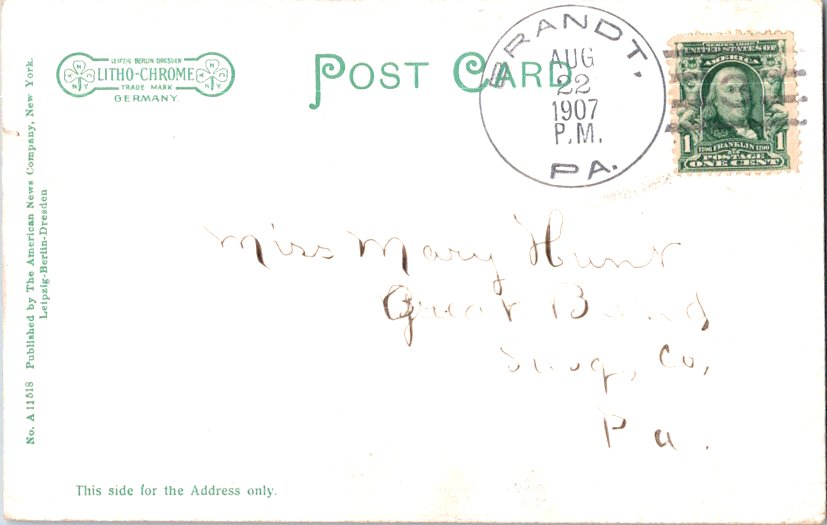 LEIPZIG BERLIN DRESDEN
LITHO-CHROME
TRADE MARK
GERMANY
N N
NY
N N
NY
POST CARD
BRANDT,
AUG
22
1907
P.M.
PA.
SERIES 1902
UNITED STATES OF
AMERICA
1706 FRANKLIN 1790
1 1
POSTAGE
ONE CENT
Miss Mary Hunt
Great Bend
Susq, Co,
Pa.
No. A 11518 Published by The American News Company, New York.
Leipzig-Berlin-Dresden
This side for the Address only.